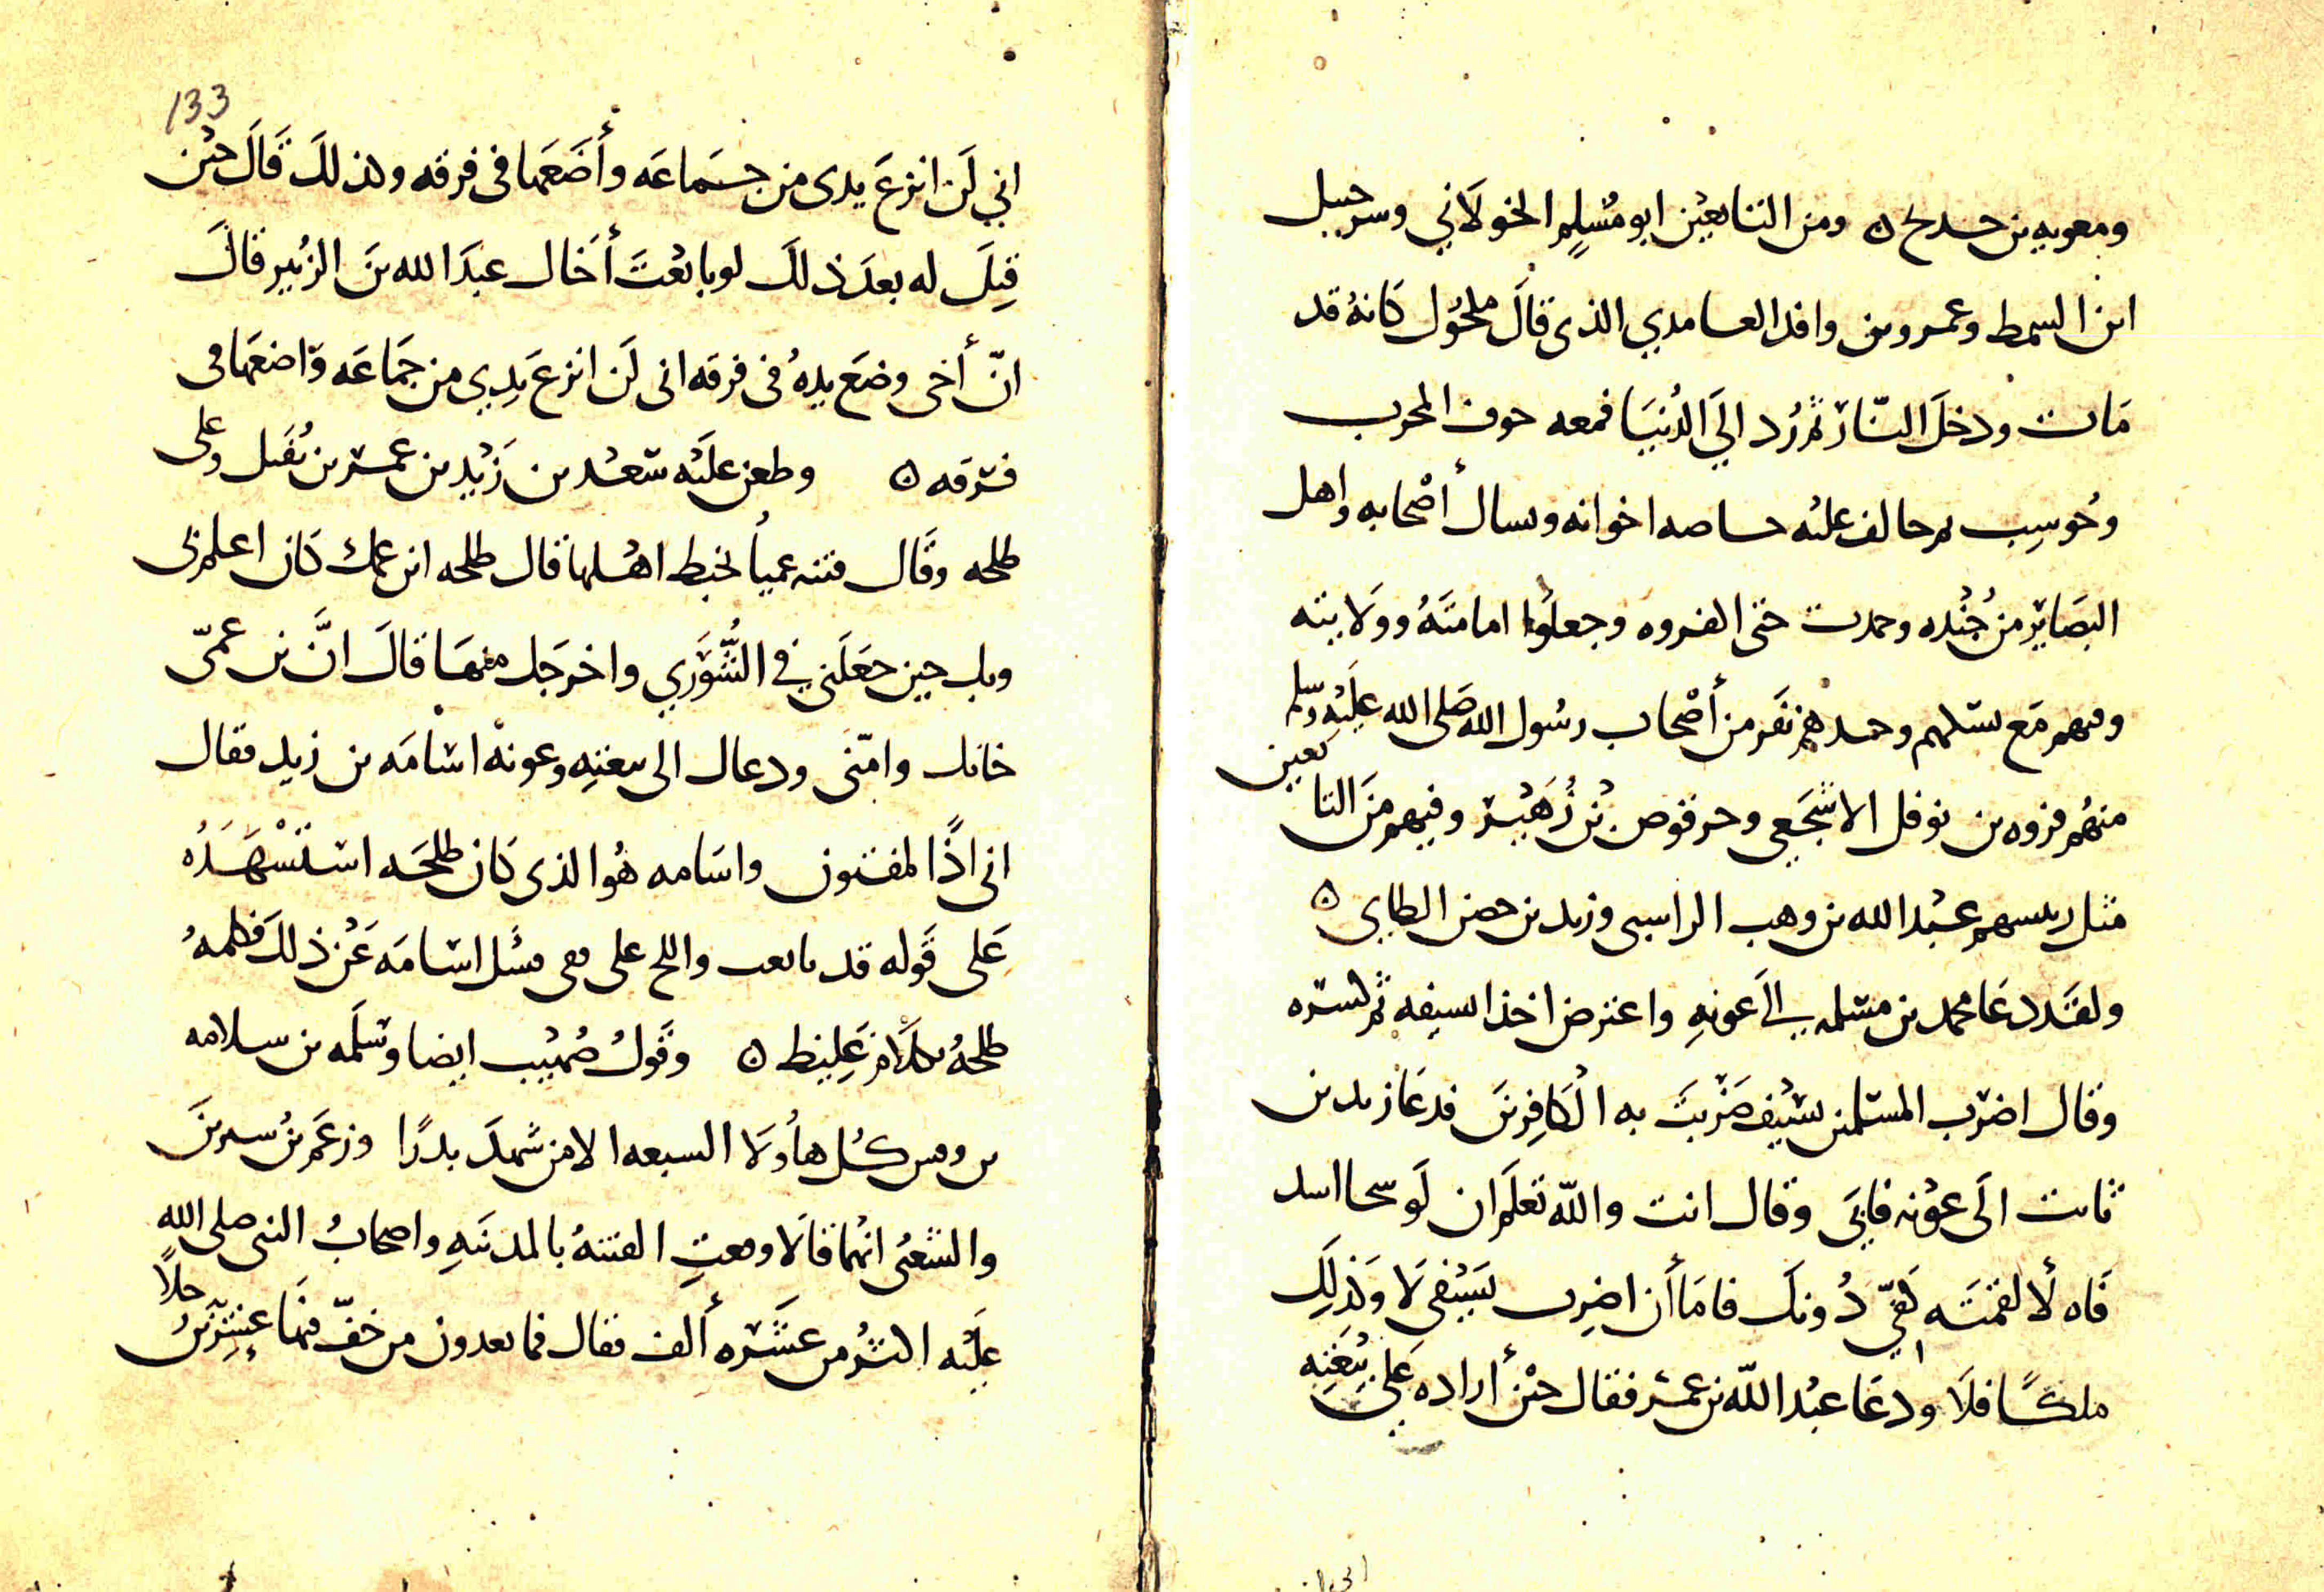 ومعويه بن حديج ۞ ومن التابعين ابو مسلم الخولاني وشرحبيل
ابن السمط وعمرو بن واقد العامدي الذى قال مكحول كانهُ قد
مَات ودخلَ النّار ثم رُد اليَ الدُنيَا فمعه خوف المجرب
وحُوسِب خاصه اخوانه وسال أصْحابه واهل
البصَاير من جُنْده حتى وجعلُوا امامتَهُ وولايته
ومنهم مَع نفر من أصْحاب رسُول الله صَلى الله عليْه وسلم
منهُم فروه بن نوفل الاشجَعي وحرقوص بْن زُهَيْر وفيهم منَ التابعين
مثل رييسهم عبْد الله بن وهب الراسبى وزيد بن حصن الطايى ۞
ولقَد دعَا محمد بن مسْلمه الىَ عونهِ واعترض اخذا بسيفه ثم كسَره
وقال اضرَب المسلمين بسَيْف ضَرَبتَ به الْكافِرينَ فدعَا زيد بن
ثابت الَى عَوْنه فابىَ وقال انت والله تعلَم ان لَو اسد
فَاه لألقمتَه كفيّ دُونك فامَا أن اضرِب بسَيْفى لَا وَلذلِكَ
ملكًا فلَا ودعَا عبْد الله بن عمَر فقال حيْن أراده عَلى بيْعَتِه
133
اني لَن انزعَ يدى من جمَاعَه وأضَعَها فى فرقه ولذلكَ قَالَ حيْن
قِيلَ له بعدَ ذلكَ لو بايعْتَ أخَاك عبدَ الله بنَ الزُبير قالَ
انّ أخى وضَع يدهُ فى فرقه انى لَن انزعَ يدِي من جَمَاعَه وَاضعَها فى
فرَقه ۞ وطعن عليْه سَعْد بن زَيْد بن عمَر بن نُفَيل وعلى
طلحه وقَال فتنه عمياُ تخبط اهْلها قال طلحه ابن عمك كان اعلم بى
وبك حين جعَلَنى في الشُّورَي واخرجَك منهَا قالَ انَّ بن عمىّ
خافك وامّننى ودعاك الى بيعتِه وعونهْ اسَامَه بن زيد فقال
انى اذًا لمفتون واسَامه هُو الذى كان طلحَه اسْتَشْهَدُه
عَلى قَوله قد بايعت واللج على قفى فسُئل اسَامَه عَنْ ذلكَ فكلمهُ
طلحهُ بكلَام غَلِيظ ۞ وقَولُ صُهيْب ايضا وسَلَمه بن سلامه
بن وقش كُل هاُولَا السبعه الا من شهدَ بدرًا وزعَم بنُ سيرينَ
والشعْبُى انهما قالَا وقعتِ الفتنهُ بالمدينَهِ واصحابُ النبى صلى الله
عليْه اكثرُ من عشَره ألف فقال فما يعدون من خفّ فيهَا عِشرِينَ رجلاً